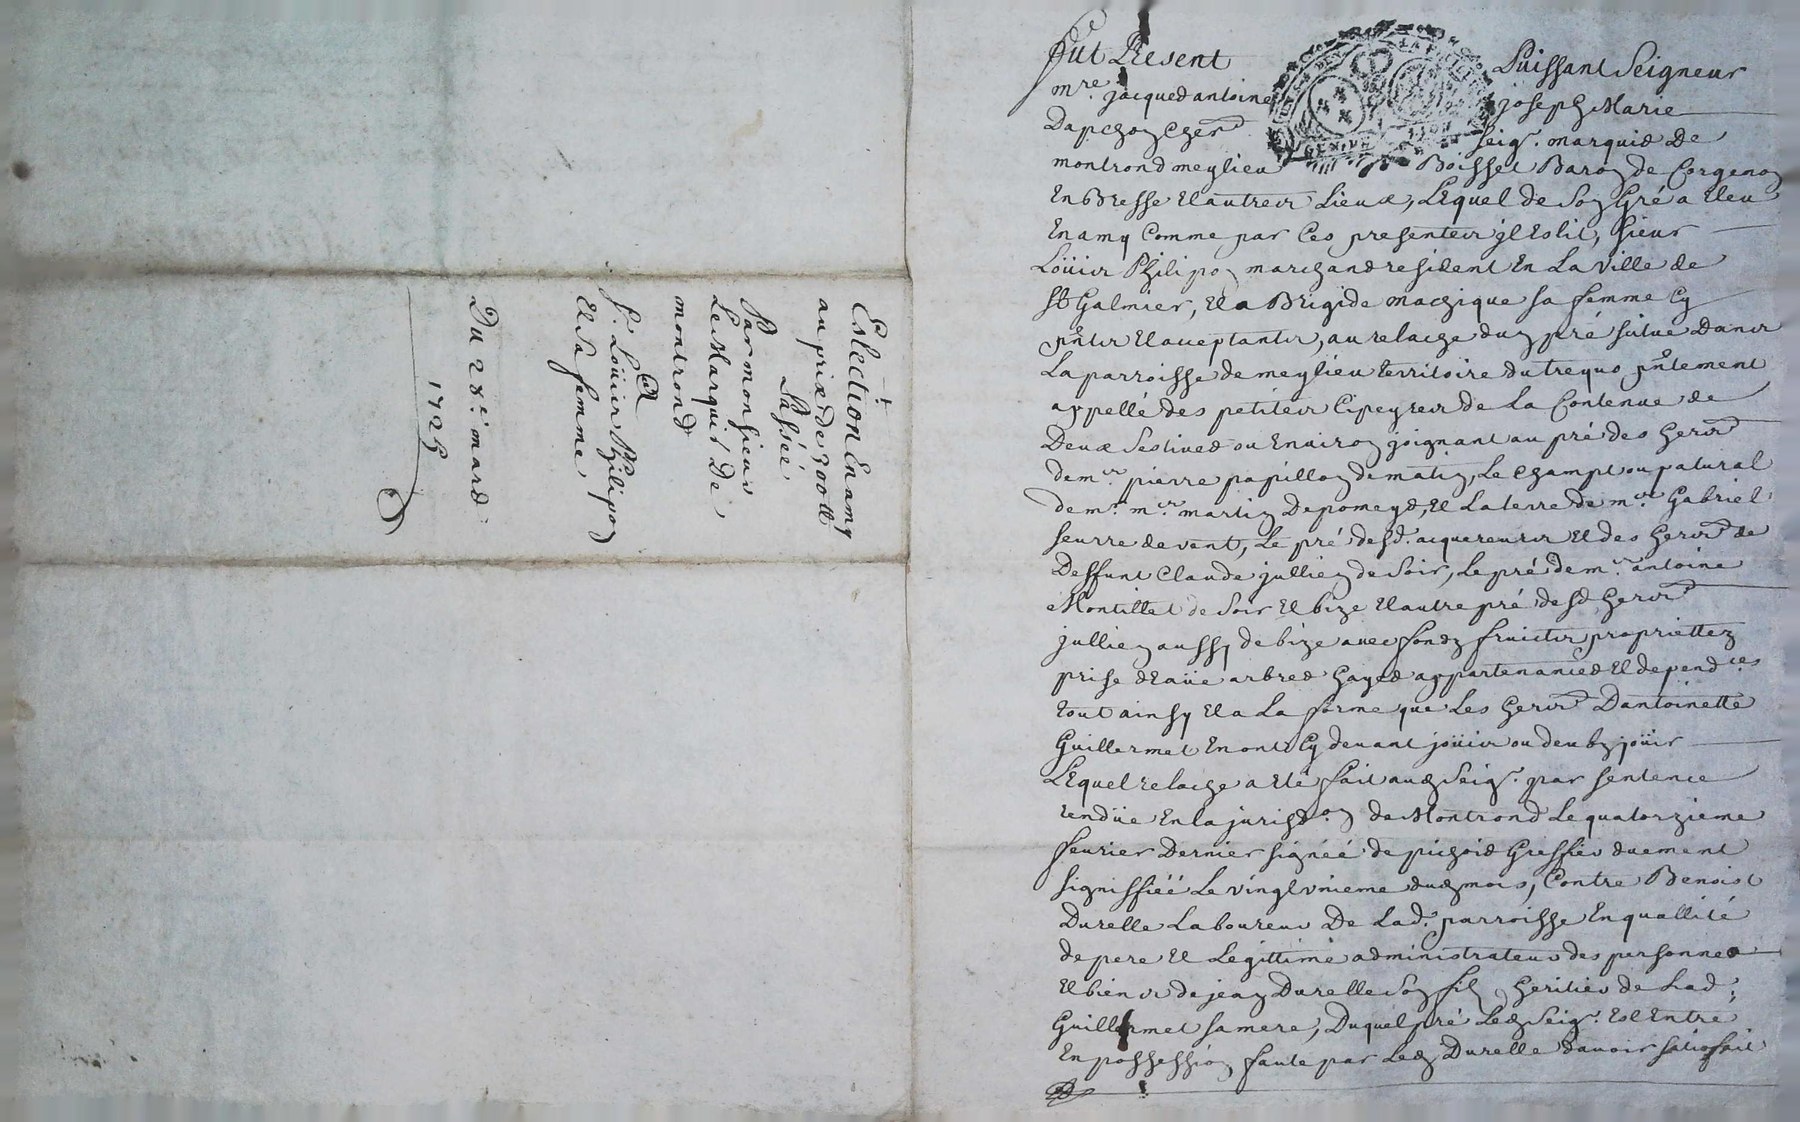 Eslection En amy
au prix de 300 lt
Passéé
Par monsieur
Le Marquis De
montrond
A
Sr. Loüis Philipon
Et Sa femme
Du 28e. mars
1725
fut Present Puissant Seigneur
mre. jacques antoine joseph Marie
Dapchon Cher seigr. marquis De
montrond meylieu Boisset Baron de Corgenon
En Bresse Et autres Lieux, Lequel de Son Gré a Eleu
En amy Comme par Ces presentes jl Eslit, sieur
Loüis Philipon marchand resident En La Ville de
St Galmier, Et a Brigide machique sa femme Cy
pnts Et acceptants, au relache dun pré scitue Dans
La parroisse de meylieu territoire du treyvo pntement
appellé des petites Cipeyres de La Contenue de
Deux Sestives ou Environ joignant au pré des hers
de mr. pierre papillon de matin, Le Champt ou patural
de mr. mr. martin Depomeys, Et La terre de mr. Gabriel
seurre de vent, Le pré desd. acquereurs Et des hers de
Deffunt Claude jullien de Soir, Le pré de mr. antoine
Montillet de Soir Et bize Et autre pré desd hers
jullien aussy de bize avec fondz fruicts propriettez
prise dEaüe arbres hayes appartenances Et dependces
tout ainsy Et a La forme que Les hers Dantoinette
Guillermet En ont Cy devant joüir ou deub joüir
Lequel relache a Eté fait aud Seigr. par sentence
rendüe En la jurisdon de Montrond Le quatorzieme
feurier Dernier signéé de pichois Greffier duement
signiffiéé Le vingt vnieme dud mois, Contre Benoist
Durelle Laboureur De Lad. parroisse En quallité
de pere Et Legittime administrateur des personnes
Et biens de jean Durelle Son fils heritier de Lad.
Guillermet sa mere, Duquel pré Led Seigr. Est Entré
En possession faute par Led Durelle davoir satisfait